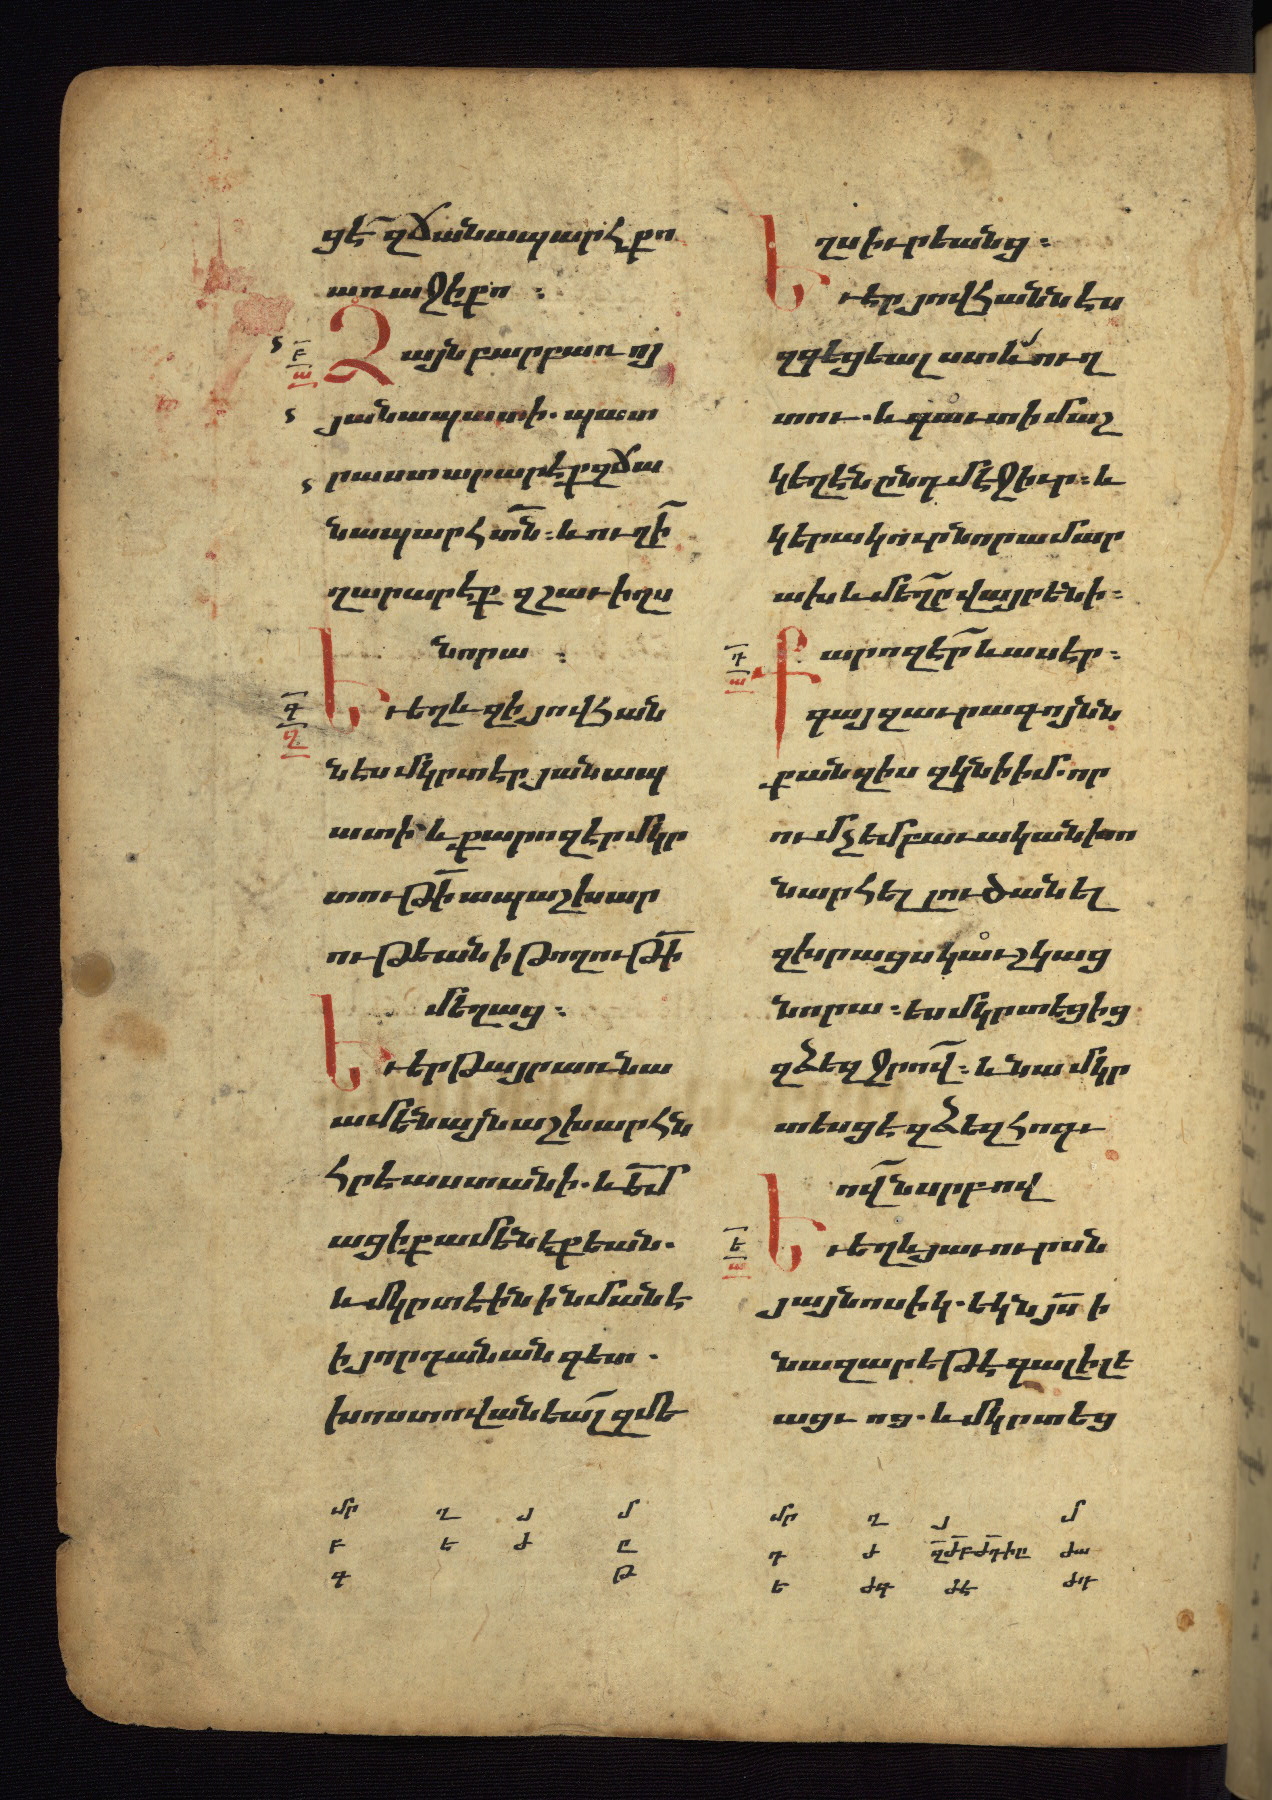 ցէ զճանապարհ քո
առաջի քո ։
Ձայն բարբառոյ
յանապատի. պատ
րաստ արարէք զճա
նապարհ տն։ և ուղի
ղ արարէք զշաւիղս
նորա ։
Եւ եղև զի յովհան
նէս մկրտէր յանապ
ատի և քարոզէր մկր
տութի ապաշխար
ութեան ի թողութի
մեղաց ։
Եւ երթայր առ նա
ամենայն աշխարհն
հրէաստանի. և եմ
ացիք ամենեքեան.
և մկրտէին ի նմանէ
ի յորդանան գետ .
խոստովանեալ զմե
ղս իւրեանց ։
Եւ էր յովհաննէս
զգեցեալ ստև ուղ
տու. և գաւտի մաշ
կեղէն ընդ մէջ իւր։ և
կերակուր նորա մար
ախ և մեղր վայրենի ։
Քարոզէր և ասէր ։
գայ զաւրագոյնն
քան զիս զկնի իմ. որ
ում չեմ բաւական խո
նարհել լուծանել
զխրացս կաւշկաց
նորա ։ ես մկրտեցից
զձեզ ջրով ։ և նա մկր
տեսցէ զձեզ հոգւ
ովն սրբով
Եւ եղև յաւուրսն
յայնոսիկ. եկն յս ի
նազարեթէ գալիլե
ացւոց. և մկրտեց
բ
ա
գ
զ
դ
ա
ե
ա
մր ղ յ մ
բ ե ժ ը
գ թ
մր ղ յ մ
դ ժ ժա
ե ժգ ժէ ժդ